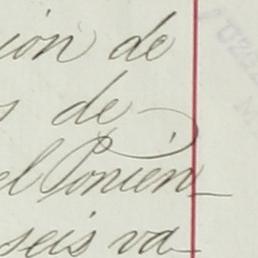 ión de
s de
el Ponien-
seis va-